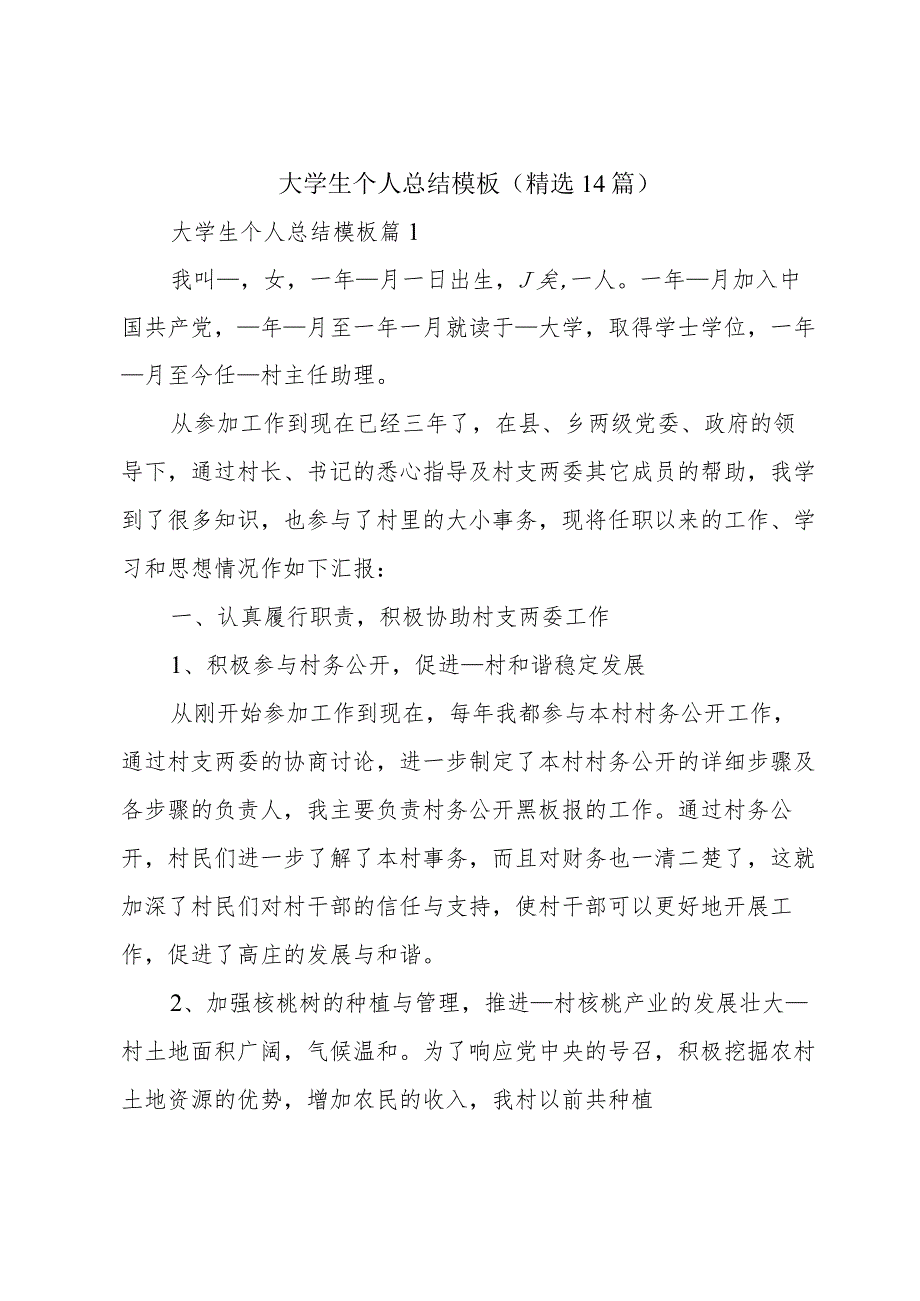 大学生个人总结模板（精选14篇）
大学生个人总结模板篇1
我叫—，女，一年—月一日出生，J矣,一人。一年—月加入中
国共产党，—年—月至一年一月就读于—大学，取得学士学位，一年
—月至今任—村主任助理。
从参加工作到现在已经三年了，在县、乡两级党委、政府的领
导下，通过村长、书记的悉心指导及村支两委其它成员的帮助，我学
到了很多知识，也参与了村里的大小事务，现将任职以来的工作、学
习和思想情况作如下汇报：
一、认真履行职责，积极协助村支两委工作
1、积极参与村务公开，促进—村和谐稳定发展
从刚开始参加工作到现在，每年我都参与本村村务公开工作，
通过村支两委的协商讨论，进一步制定了本村村务公开的详细步骤及
各步骤的负责人，我主要负责村务公开黑板报的工作。通过村务公
开，村民们进一步了解了本村事务，而且对财务也一清二楚了，这就
加深了村民们对村干部的信任与支持，使村干部可以更好地开展工
作，促进了高庄的发展与和谐。
2、加强核桃树的种植与管理，推进—村核桃产业的发展壮大—
村土地面积广阔，气候温和。为了响应党中央的号召，积极挖掘农村
土地资源的优势，增加农民的收入，我村以前共种植